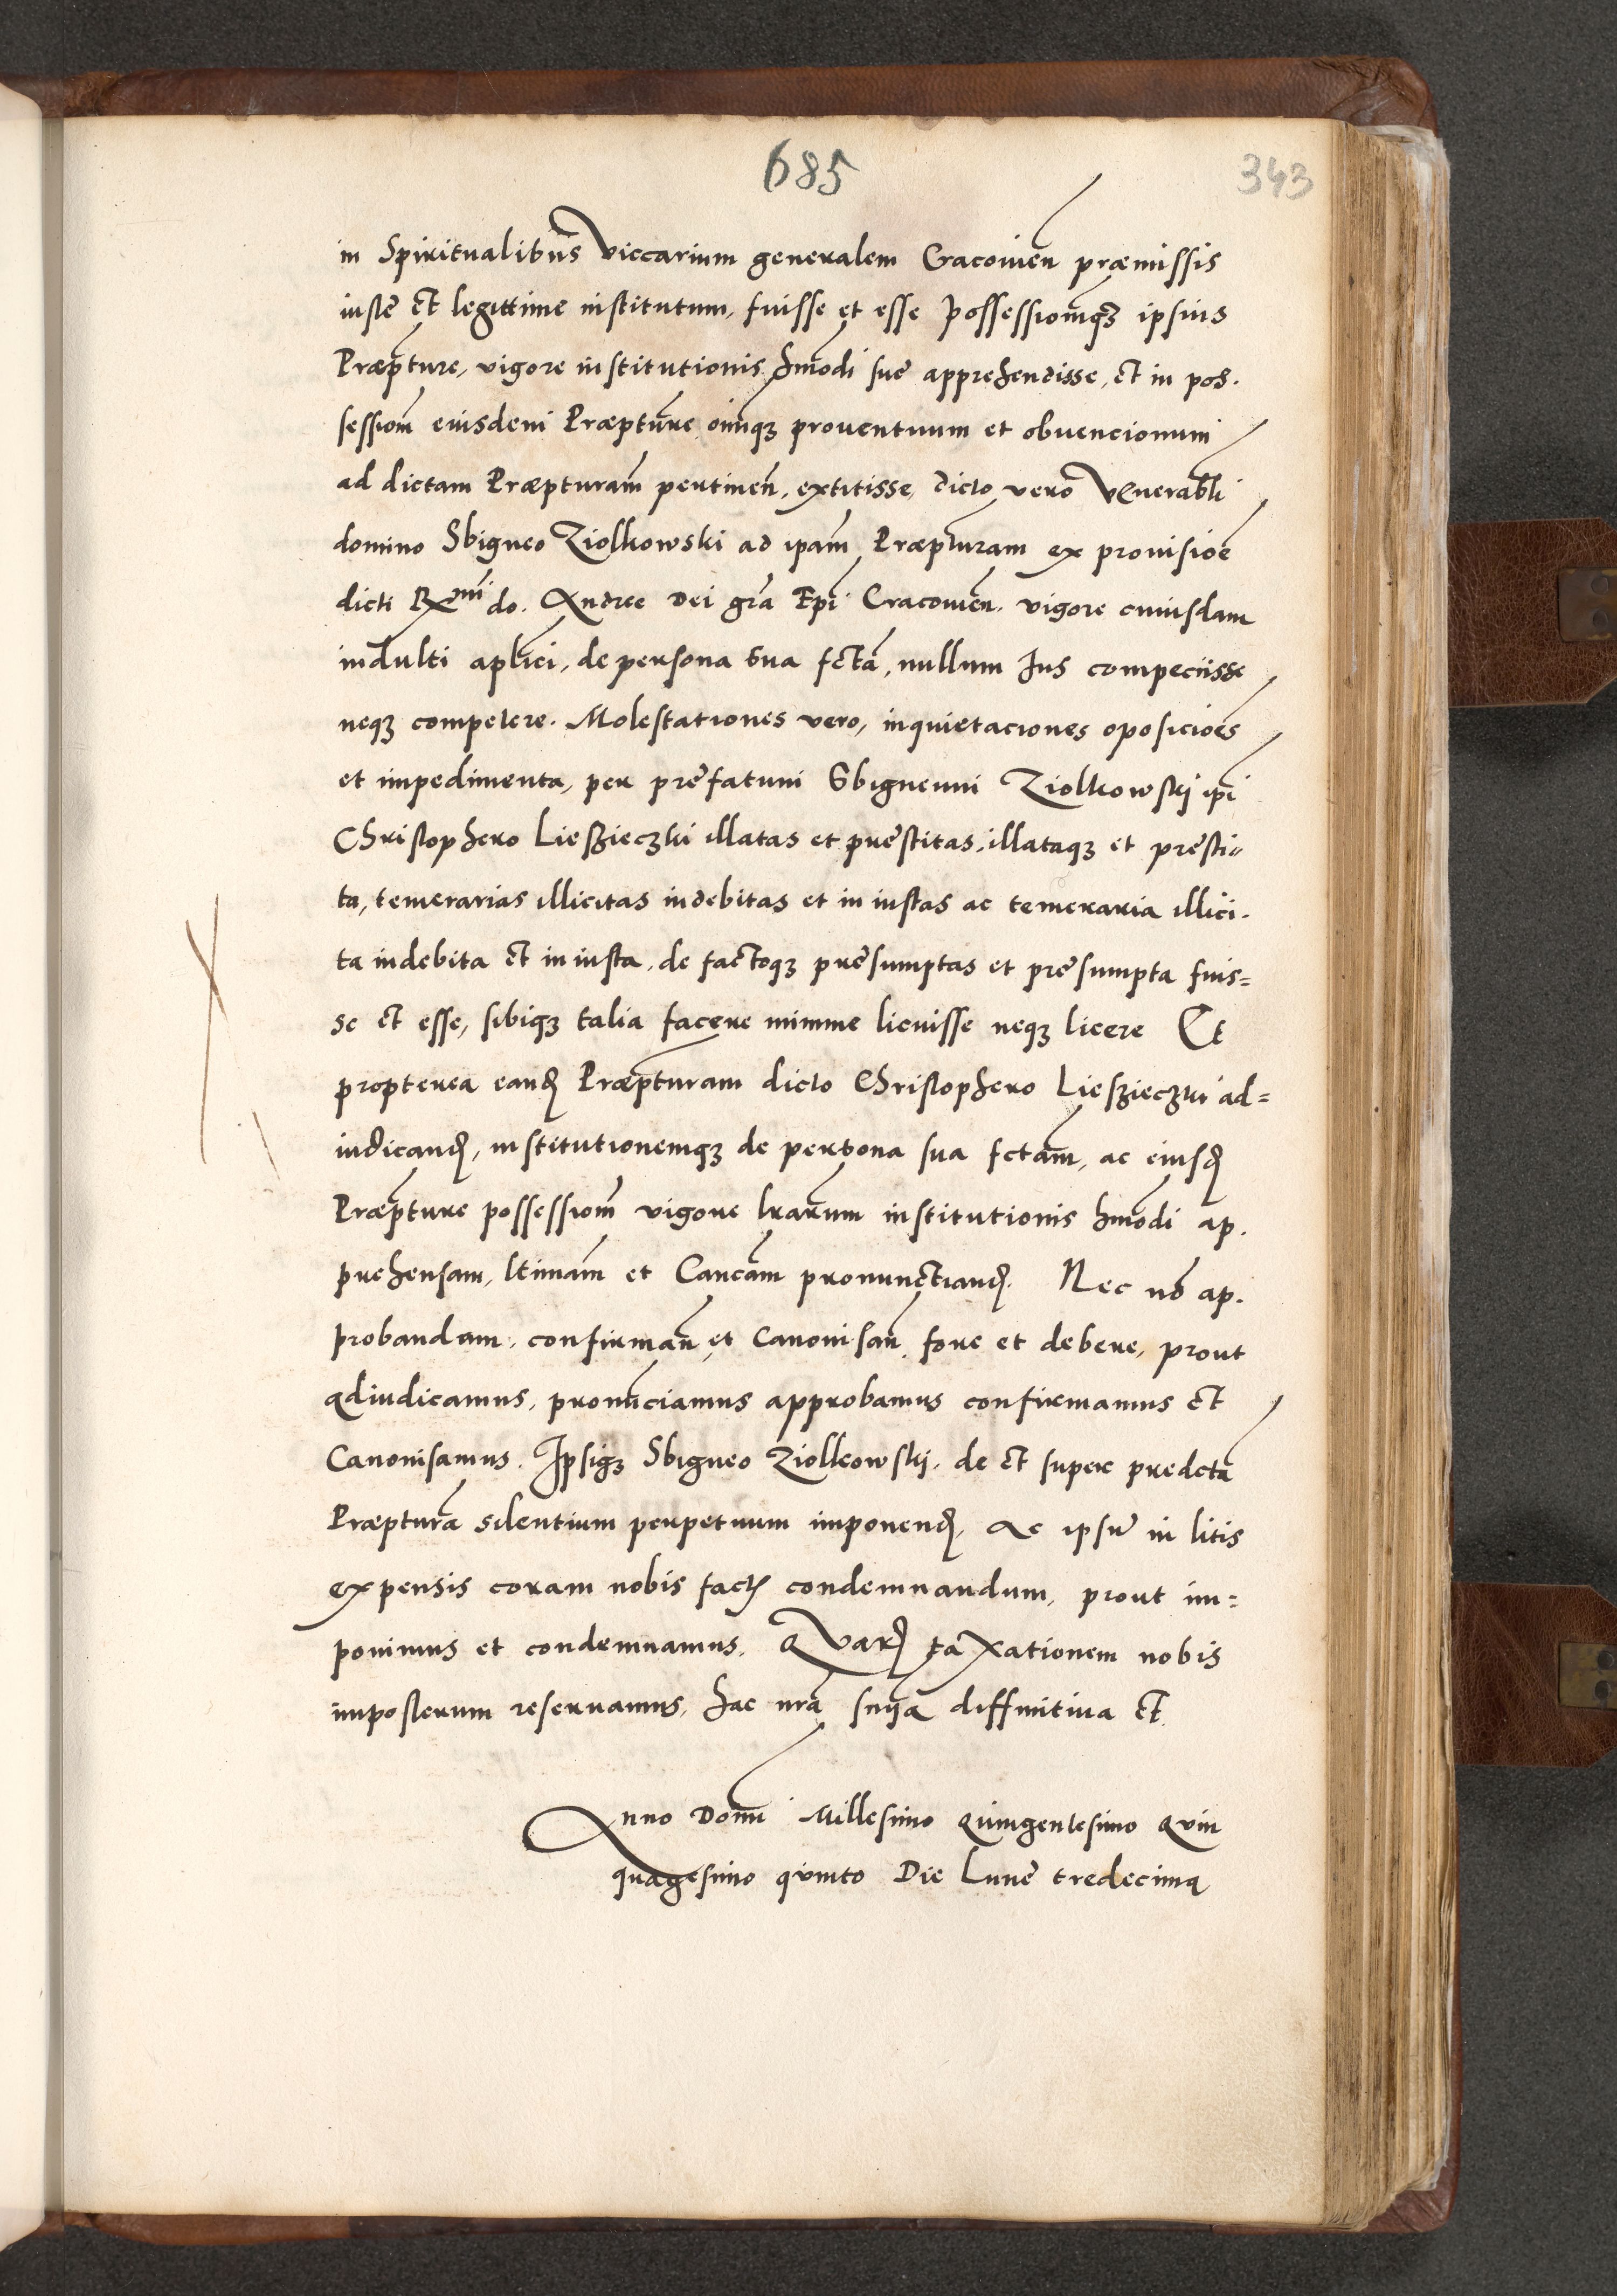 685
343
in Spiritualibus Viccarium generalem Cracouien̄ præmissis
iuste et legittime institutum, fuisse et esse possessiom̄qȝ ipsius
Præpture, vigore institutionis hm̄odi sue apprehendisse, et in pos-
sessiom̄ eiusdem Præpture oim̄qȝ prouentuum et obuencionum
ad dictam Præpturam pertinen̄, extitisse, dicto vero Venerabli
domino Sbigneo Ziolkowski ad ipam̄ Præpturam ex prouisioē
dicti Rx̄mi do. Andree Dei grā Epi Cracouien̄. vigore cuiusdam
indulti aplici, de persona sua fctā, nullum Ius competiisse
neqȝ competere. Molestationes vero, inquietaciones oposicioēs
et impedimenta, per prefatum Sbigneum Ziolkowskj ipi
Christophero Lieszieczki illatas et prestitas, illataqȝ et presti-
ta, temerarias illicitas indebitas et in iustas ac temeraria illici-
ta indebita et in iusta, de factoqȝ presumptas et presumpta fuis=
se et esse, sibiqȝ talia facere minime licuisse neqȝ licere Et
propterea eand̄ Præpturam dicto Christophero Lieszieczki ad=
iudicand̄, institutionemqȝ de persona sua fctam̄, ac eiusd̄
Præpture possessiom̄ vigore lrārum institutionis hm̄odi ap-
prehensam, ltimam̄ et Cancām pronunctiand̄. Nec nō ap-
probandam, confirman̄ et Canonisan̄ fore et debere, prout
adiudicamus, pronunciamus approbamus confirmamus et
Canonisamus. Ipsiqȝ Sbigneo Ziolkowskj, de et super predcta
Præpturā silentium perpetuum imponend̄, Ac ipsū in litis
expensis coram nobis fact̄ condemnandum, prout im=
ponimus et condemnamus. Quar̄ taxationem nobis
imposterum reseruamus, hac nrā snīa diffinitiua et
Anno Domi Millesimo Quingentesimo Quin
quagesimo quinto Die Lune tredecima